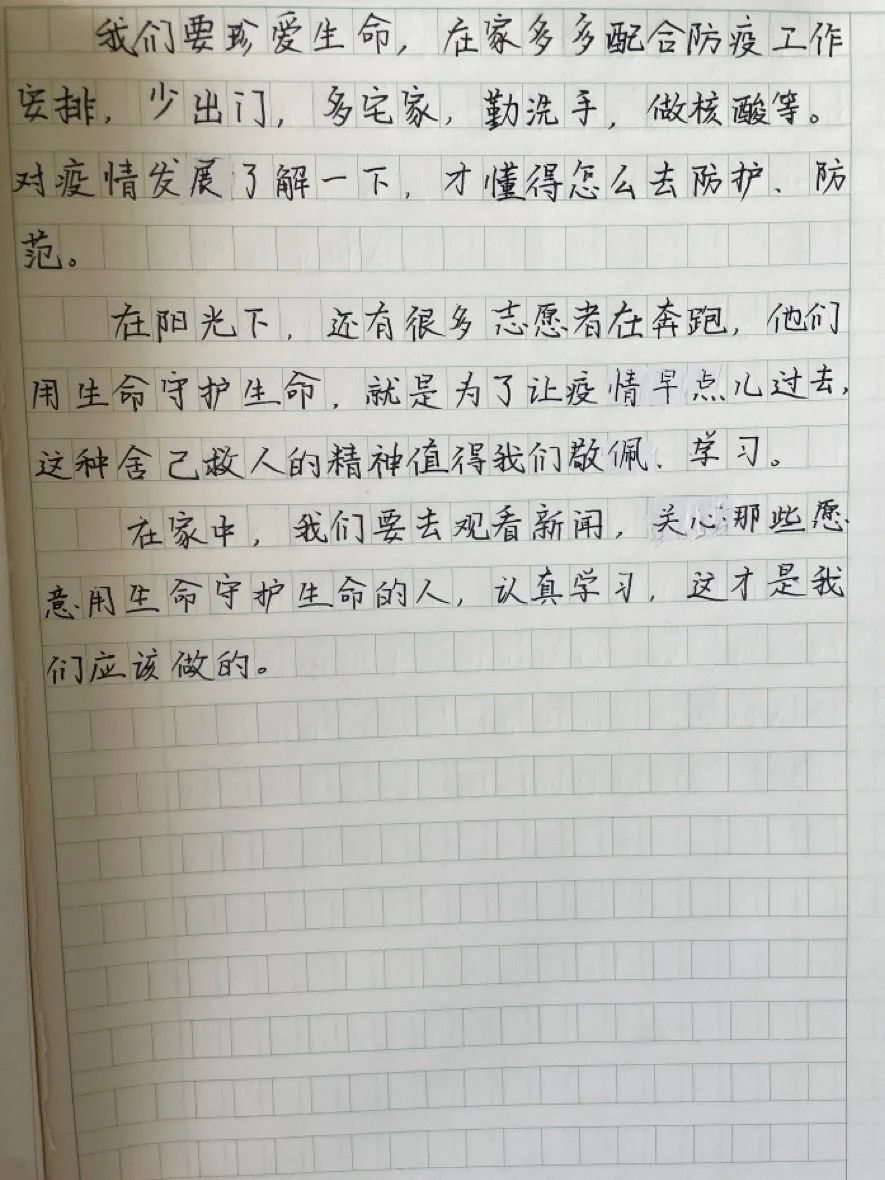 我们要珍爱生命，在家多多配合防疫工作
安排，少出门，多宅家，勤洗手，做核酸等。
对疫情发展了解一下，才懂得怎么去防护、防
范。
在阳光下，还有很多志愿者在奔跑，他们
用生命守护生命，就是为了让疫情早点儿过去，
这种舍己救人的精神值得我们敬佩、学习。
在家中，我们要去观看新闻，关心那些愿
意用生命守护生命的人，认真学习，这才是我
们应该做的。